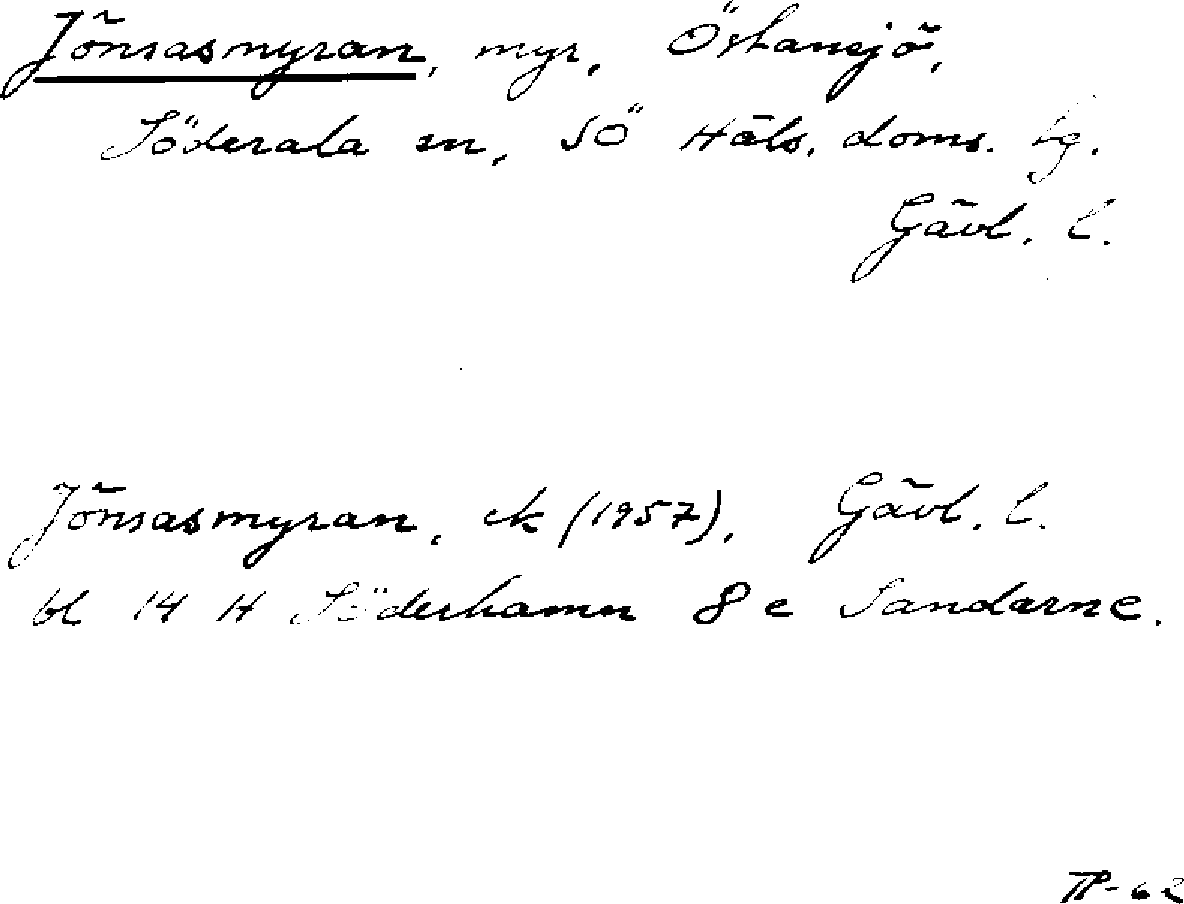 Jönsasmyran, myr, Östansjö,
Söderala sn, SÖ Häls. doms. tg.
Gävl. l.
Jönsasmyran, ek (1957), Gävl. l.
bl 14 H Söderhamn 8 e Sandarne.
TP-62